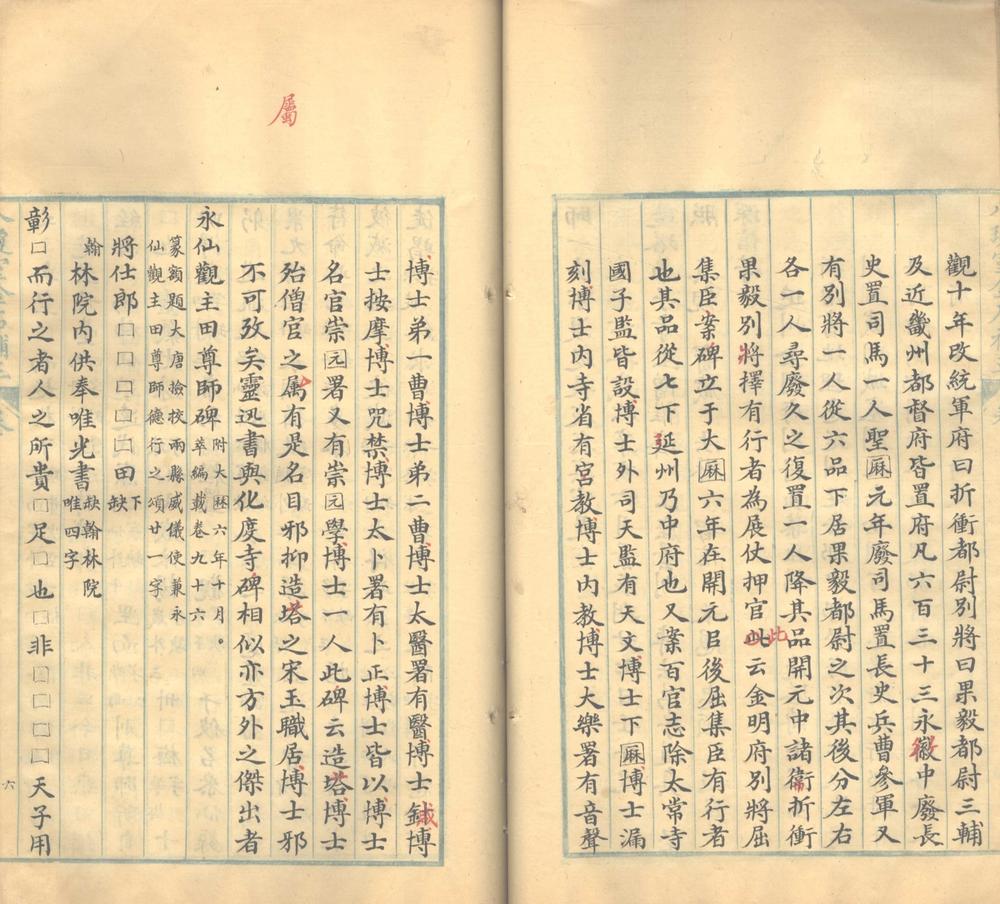 觀十年改統軍府曰折衝都尉別將曰果毅都尉三輔
及近畿州都督府皆置府凡六百三十三永徽中廢長
史置司馬一人聖厤元年廢司馬置長史兵曹參軍又
有別將一人從六品下居果毅都尉之次其後分左右
各一人尋廢久之復置一人降其品開元中諸衛折衝
果毅別將擇有行者為展仗押官此云金明府別將屈
集臣案碑立于大厤六年在開元㠯後屈集臣有行者
也其品從七下延州乃中府也又案百官志除太常寺
國子監皆設博士外司天監有天文博士下厤博士漏
刻博士內寺省有宮教博士內教博士大樂署有音聲
屬
博士弟一曹博士弟二曹博士太醫署有醫博士鍼博
士按摩博士咒禁博士太卜署有卜正博士皆以博士
名官崇园署又有崇园學博士一人此碑云造塔博士
殆僧官之属有是名目邪抑造塔之宋玉職居博士邪
不可攷矣靈迅書與化度寺碑相似亦方外之傑出者
永仙觀主田尊師碑附大厤六年十月。萃編載卷九十六
篆額題大唐撿挍兩縣威儀使兼永
仙觀主田尊師德行之頌廿一字
將仕郎□□□□□田下缺
翰林院內供奉唯光書缺翰林院唯四字
彰□而行之者人之所貴□足□也□非□□□□天子用
六